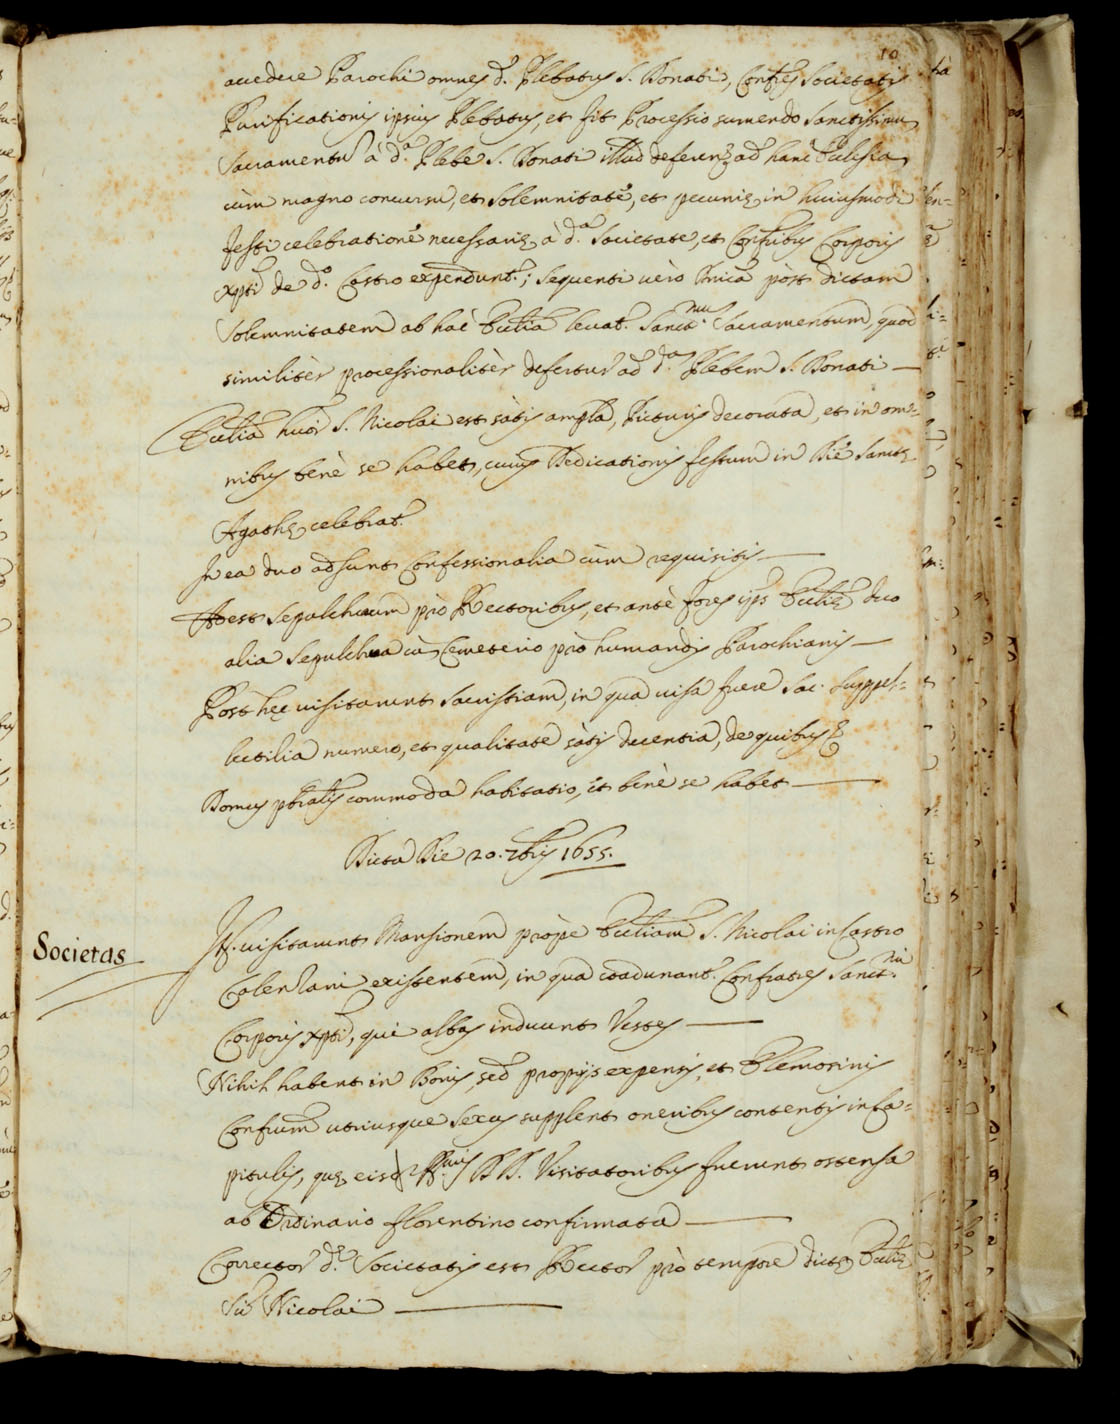 10
accedere Parochi omnes d. Plebatus S. Donati, Confres Societatis
Purificationis ipsius Plebatus, et fit Processio sumendo Sanctissimu
Sacramentu à d.a Plebe S. Donati illud deferen. ad hanc Ecclesia,
cùm magno concursu, et solemnitate, et pecunię in huiusmodi
festi celebratione necessarię à d.a Societate, et Confribus Corporis
Xpti de d.o Castro expendunt.; Sequenti verò Dnica pòst dictam
Solemnitatem ab hac Ecclia levat. Sanct.mu Sacramentum, quod
similitèr processionalitèr defertur ad d.a Plebem S. Donati —
Ecclia huius S. Nicolai est sàtis ampla, Picturis decorata, et in om=
nibus benè se habet, cuius Dedicationis festum in Die Sanctę
Agathę celebrat.
In ea duo adsunt Confessionalia cùm requisitis —
Adest Sepulchrum prò Rectoribus, et antè fores ips. Ecclię duo
alia Sepulchra cù Cemeterio prò humandis Parochianis —
Post hęc visitarunt Sacristiam, in qua visa fuere Sac. Suppel=
lectilia numero, et qualitate sàtis decentia, de quibus &
Domus pbralis commoda habitatio, et benè se habet —
Dicta Die 20. 7bris 1655.
Societas
It. visitarunt Mansionem propè Eccliam S. Nicolai in Castro
Calenzani existentem, in qua coadunant. Confratres Sanct.mi
Corporis Xpti, qui albas induunt Vestes —
Nihil habent in Bonis, sed proprijs expensis, et Elemosinis
Confrum utriusque Sexus supplent oneribus contentis in Ca=
pitulis, quę eisd Illmis DD. Visitatoribus fuerunt ostensa
ab Ordinario florentino confirmata —
Corrector d.ę Societatis est Rector prò tempore dictę Ecclię
Sti Nicolai —